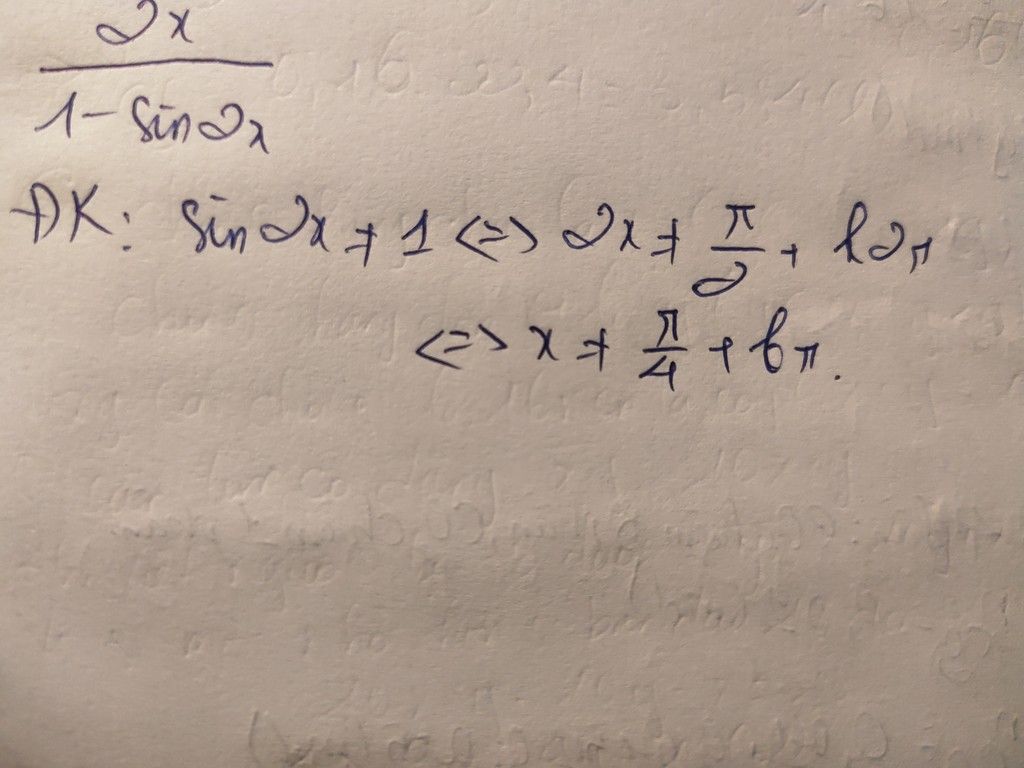 2x
1 - sin2x
ĐK: sin2x ≠ 1 <=> 2x ≠ π/2 + k2π
<=> x ≠ π/4 + kπ.